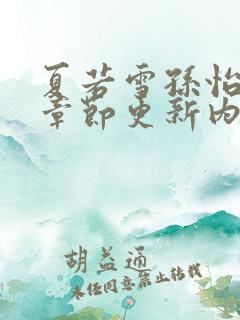 夏若雪孙怡
章节更新内
胡益通
未经同意禁止转载